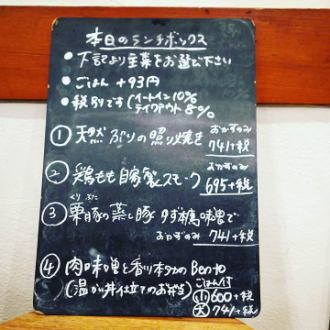 本日のランチボックス
● 下記より主菜をお選び下さい
● ごはん +93円
● 税別です(イートイン10%
テイクアウト8%
① 天然ぶりの照り焼き おかずのみ
741+税
② 鶏もも自家製スモーク おかずのみ
695+税
くりぶた
③ 栗豚の蒸し豚 ゆず味噌で
おかずのみ 741+税
④ 肉味噌と香り
Bento
(温 丼仕立てのお弁当) ごはん付
小 600+税
大 741+税